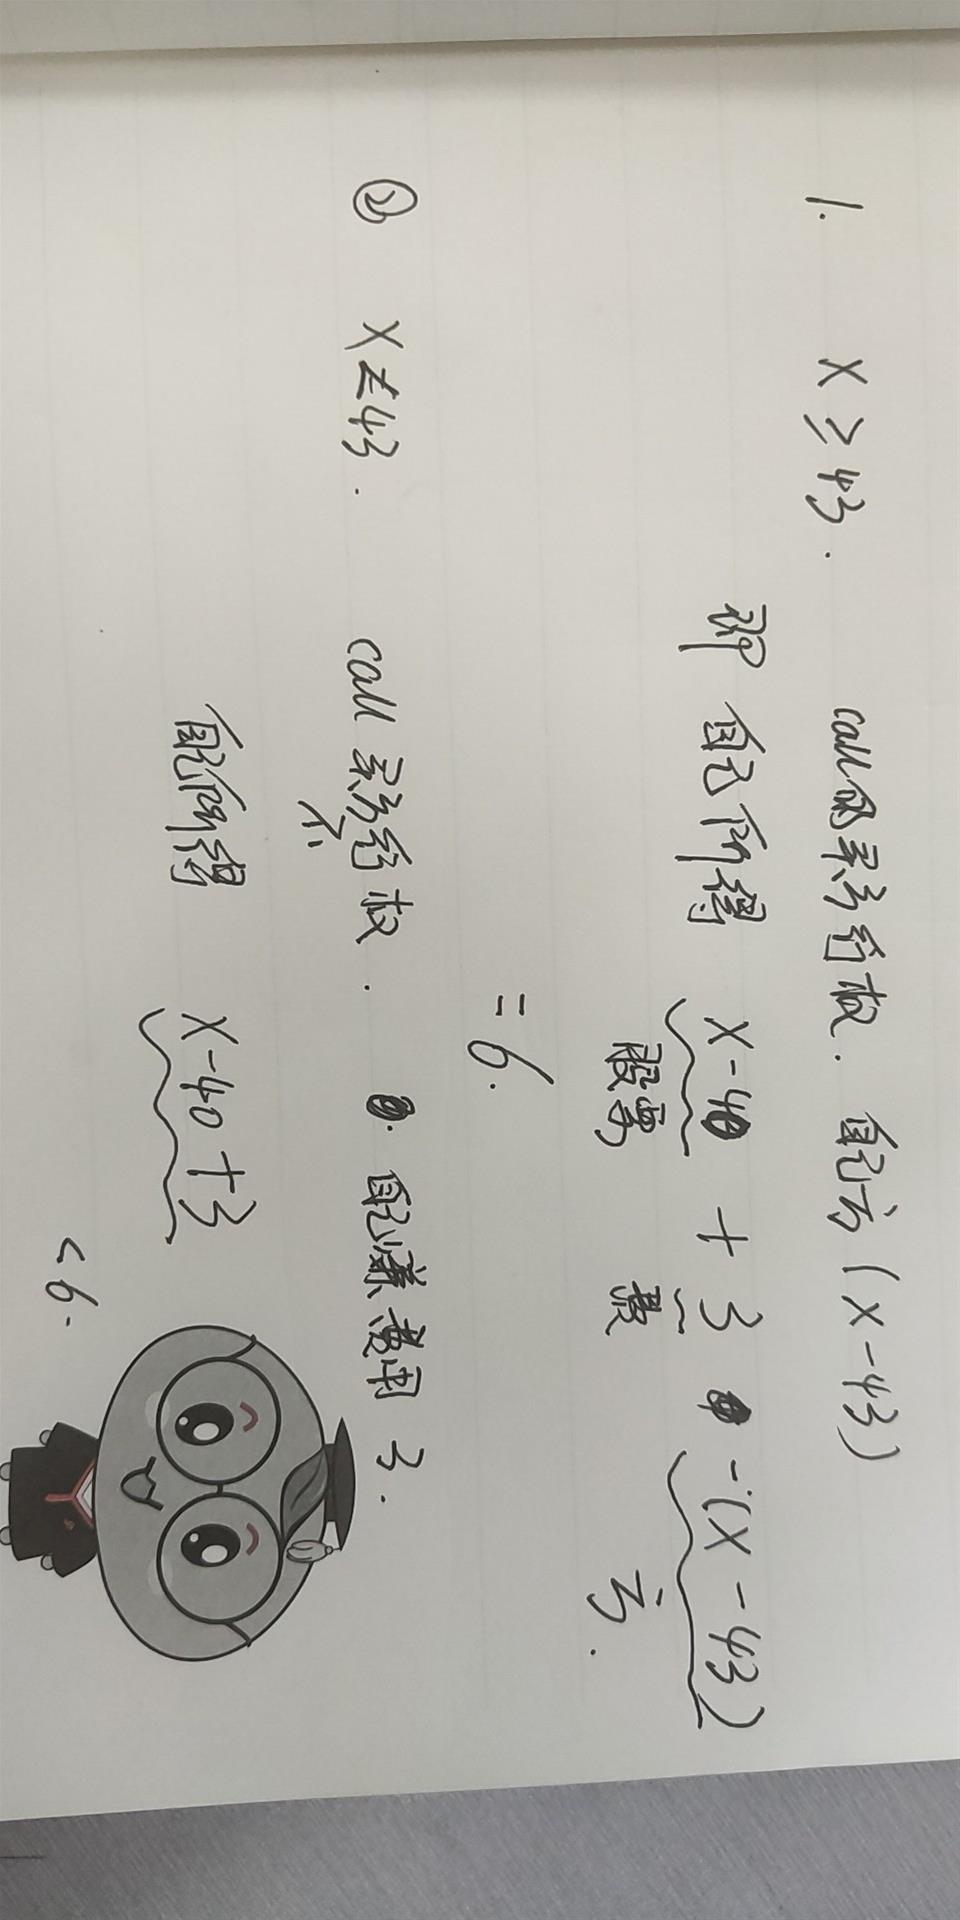 1. X ≥ 43. call 的买方行权. 自己亏 (X-43)
即 自己所得 X-40 + 3 -(X-43)
股票 费 亏.
= 6.
② X≤43. call 买方不行权. 自己赚费用 3.
自己所得 X-40+3
<6.